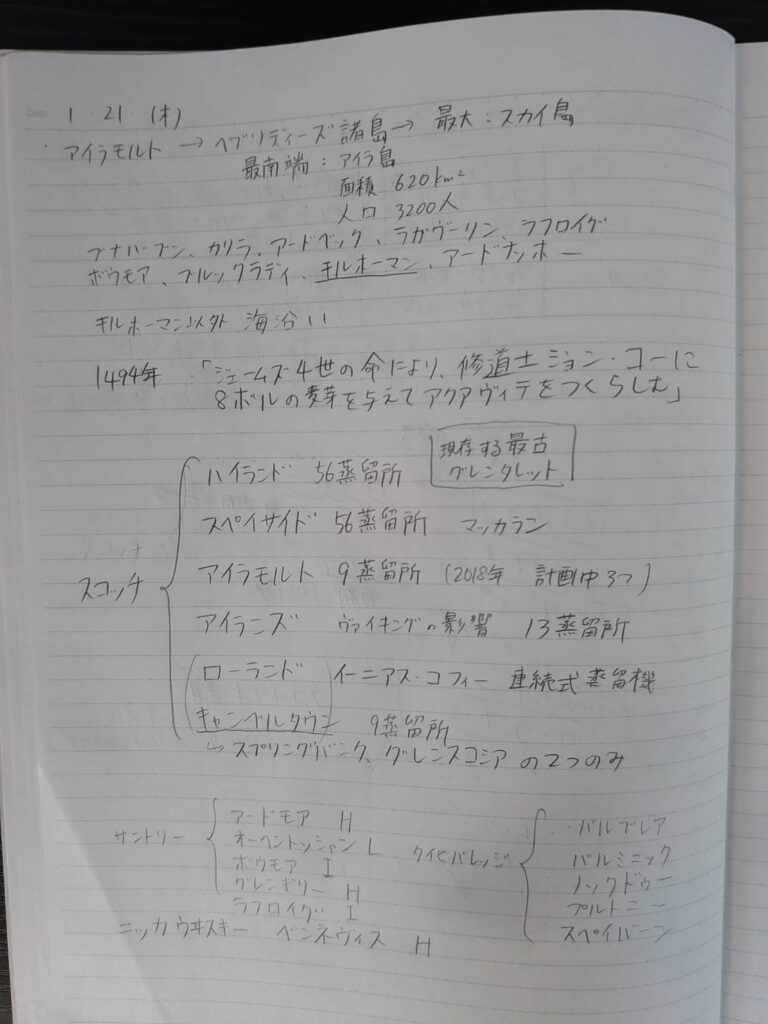 Date 1・21・(木)
・アイラモルト→ヘブリディーズ諸島→ 最大:スカイ島
最南端:アイラ島
面積 620km²
人口 3200人
ブナハーブン、カリラ、アードベック、ラガヴーリン、ラフロイグ
ボウモア、ブルックラディ、キルホーマン、アードナッホー
キルホーマン以外 海沿い
1494年 「ジェームズ4世の命により、修道士ジョン・コーに
8ボルの麦芽を与えてアクアヴィテをつくらしむ」
現存する最古
グレンタレット
ハイランド 56蒸留所
スペイサイド 56蒸留所 マッカラン
スコッチ
スコッチ
アイラモルト 9蒸留所 (2018年 計画中3つ)
アイランズ ヴァイキングの影響 13蒸留所
ローランド イーニアス・コフィー 連続式蒸留機
キャンベルタウン 9蒸留所
↳スプリングバンク、グレンスコシア の2つのみ
サントリー
アードモア H
オーヘントッシャン L
ボウモア I
グレンギリー H
ラフロイグ I
ニッカウヰスキー ベンネヴィス H
タイビバレッジ
バルブレア
バルミニック
ノックドゥー
プルトニー
スペイバーン